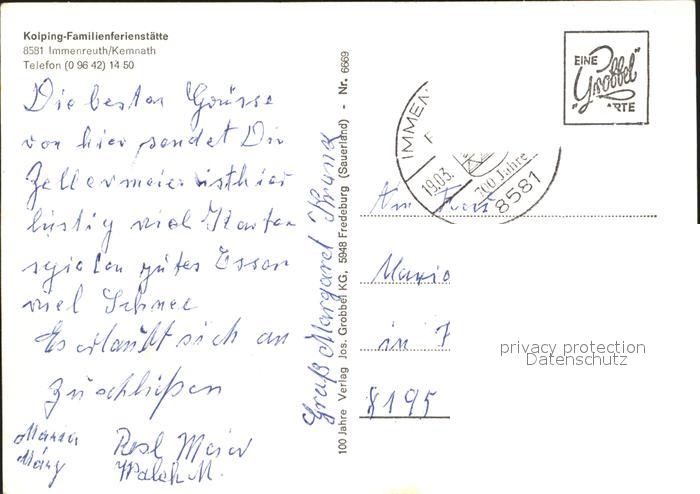 Kolping-Familienferienstätte
8581 Immenreuth/Kemnath
Telefon (0 96 42) 14 50
Die besten Grüsse
von hier sendet Dir
Zellermeier ist hier
lustig viel Karten
spielen gutes Essen
viel Schnee
Es erlaubt sich an
zuschließen
Maria Rosl Meier
Walch M.
Gruß Margaret
100 Jahre Verlag Jos. Grobbel KG, 5948 Fredeburg (Sauerland) - Nr. 6669
EINE
"Grobbel"
KARTE
IMMEN
19.03.
700 Jahre
8581
An Frau
Maria
in
8195
privacy protection
Datenschutz